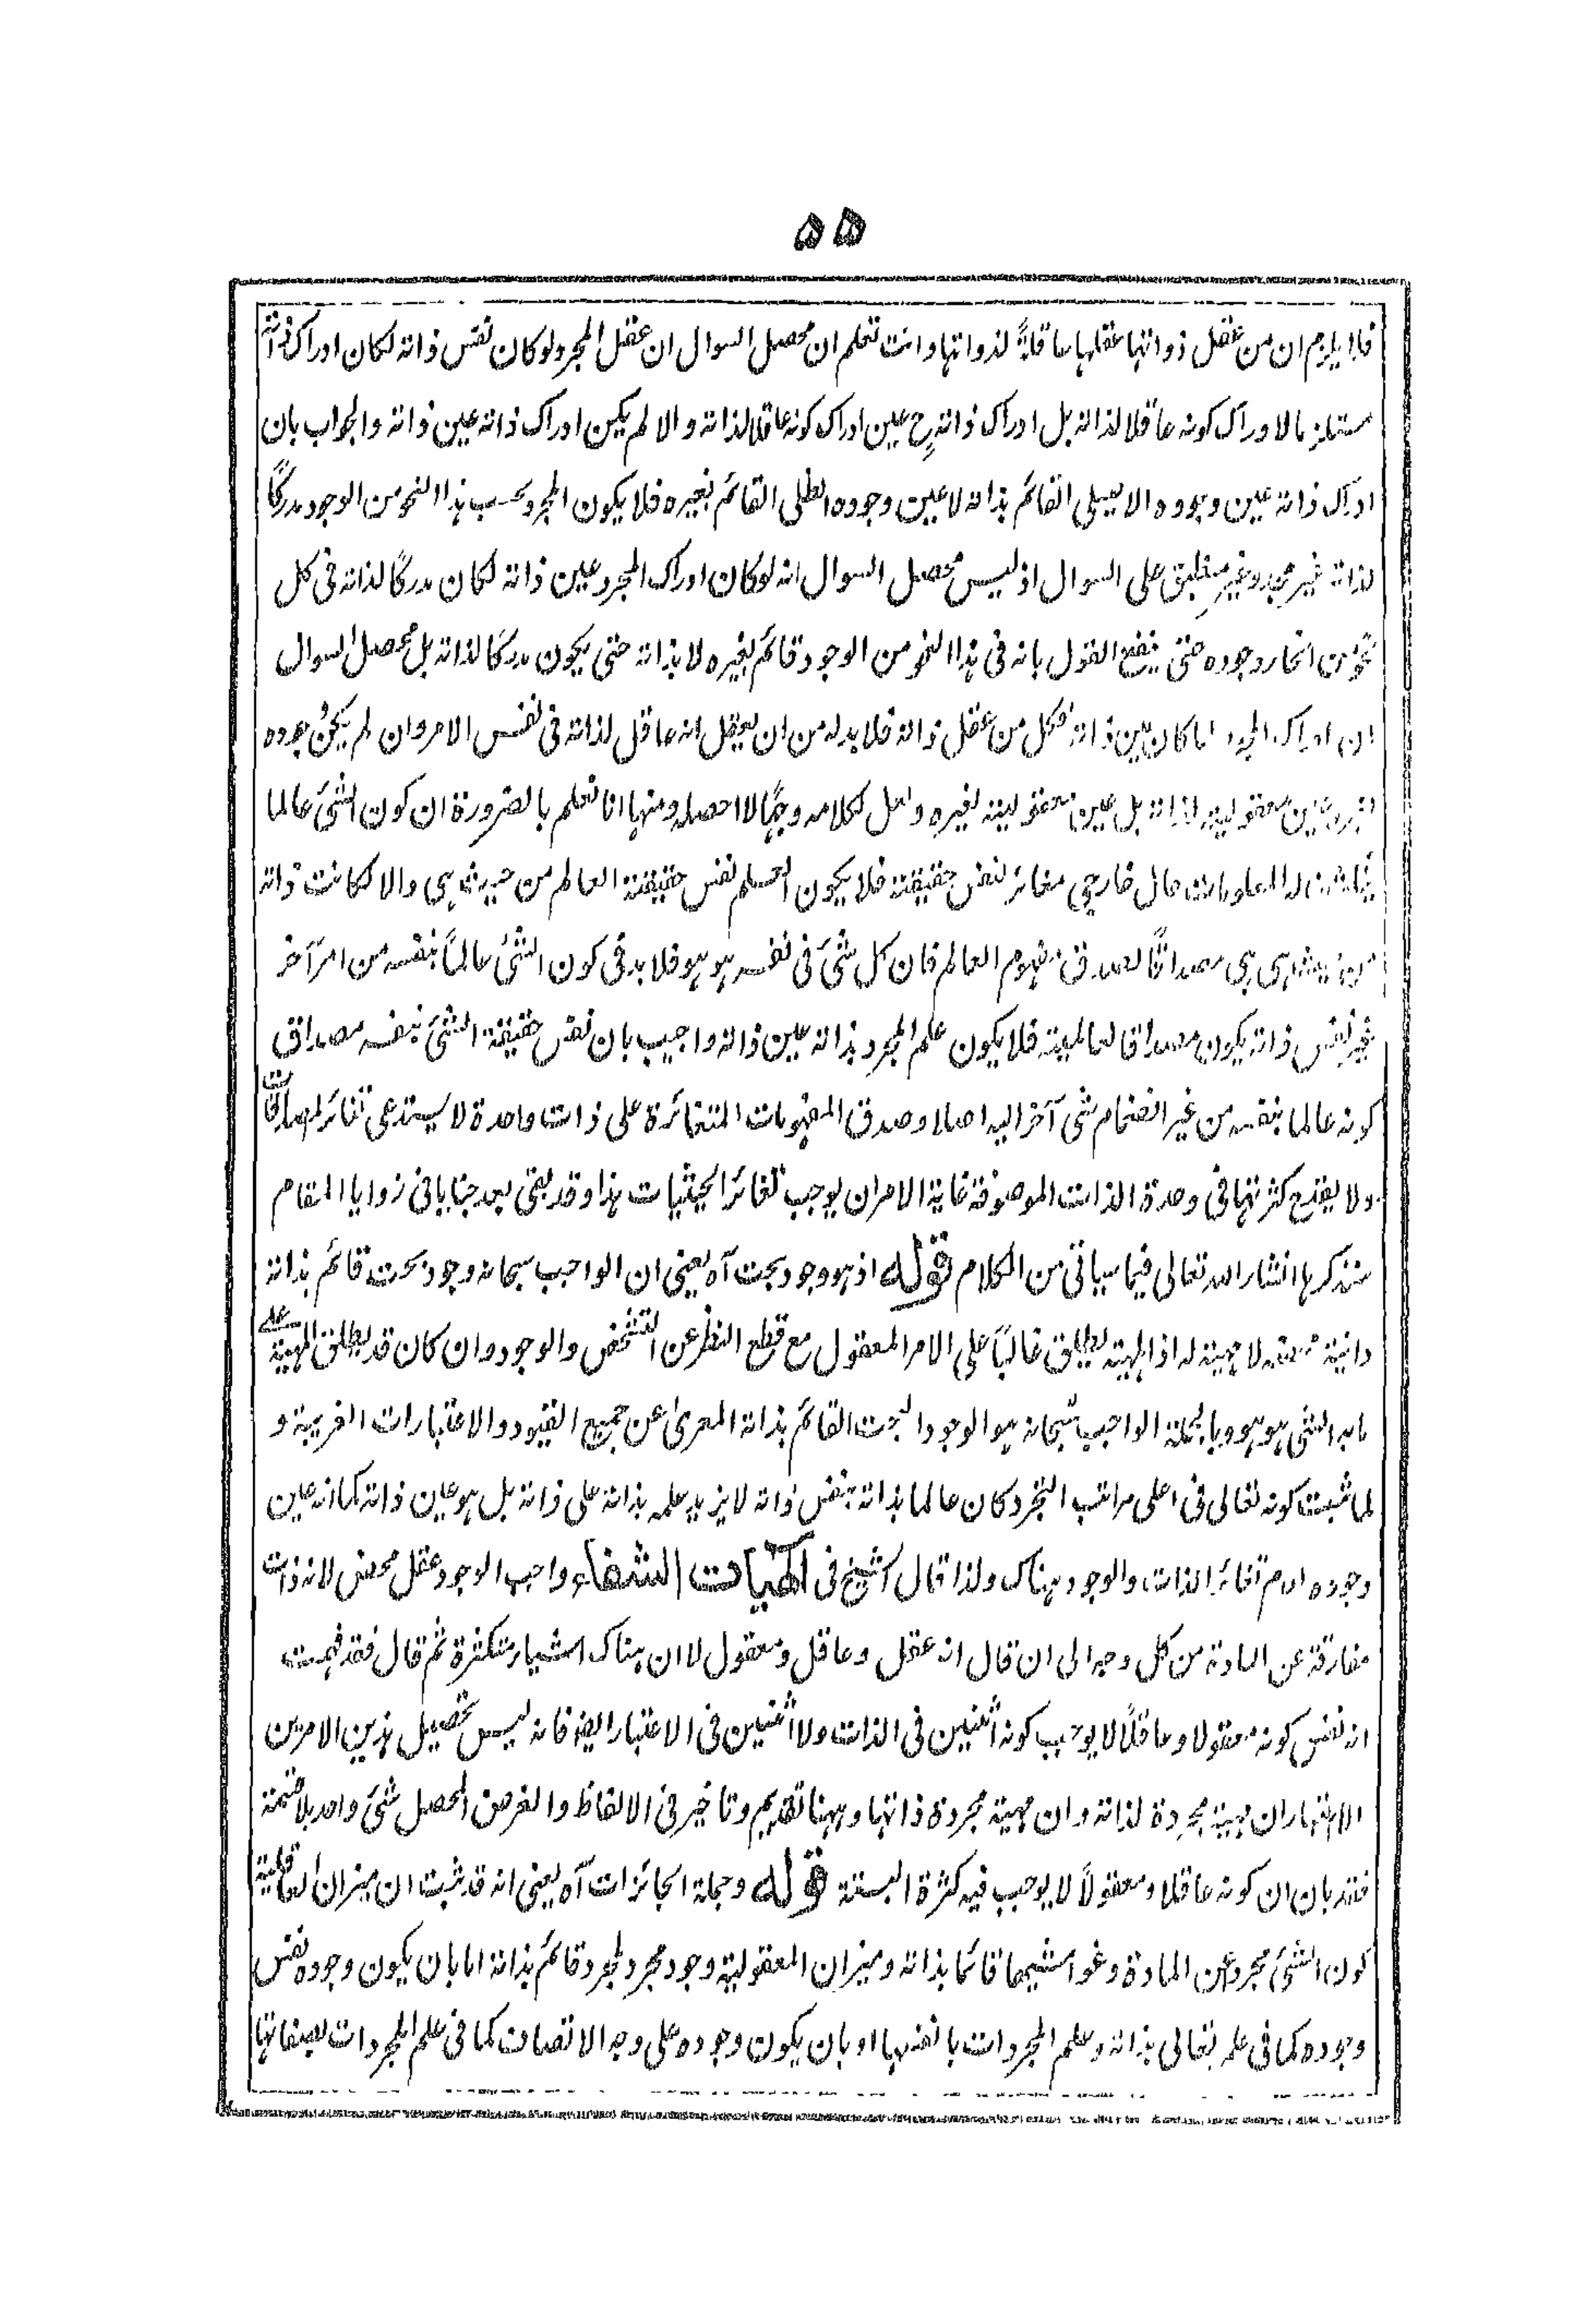 ۵۵
فلا يلزم ان من عقل ذواتها عقلها عاقلةً لذواتها وانت تعلم ان محصل السوال ان عقل المجرد لو كان نفس ذاته لكان ادراك ذاته
مستلزما لادراك كونه عاقلا لذاته بل ادراك ذاته ح عين ادراك كونه عاقلا لذاته والا لم يكن ادراك ذاته عين ذاته والجواب بان
ادراك ذاته عين وجوده الاصيلى القائم بذاته لا عين وجوده الظلى القائم بغيره فلا يكون المجرد بحسب هذا النحو من الوجود مدركًا
لذاته غير مجد وغير منطبق على السوال اذ ليس محصل السوال انه لو كان ادراك المجرد عين ذاته لكان مدركًا لذاته فى كل
نحو من انحاء وجوده حتى ينفع القول بانه فى هذا النحو من الوجود قائم بغيره لا بذاته حتى يكون مدركا لذاته بل محصل السوال
ان ادراك المجرد لما كان عين ذاته فكل من عقل ذاته فلا بد له من ان يعقل انه عاقل لذاته فى نفس الامر وان لم يكن وجوده
عين معقوليته لذاته بل عين معقوليته لغيره ولعل لكلامه وجهًا لا احصله ومنها انا نعلم بالضرورة ان كون الشئ عالما
له المعلومات حال خارجى مغائر لنفس حقيقته فلا يكون العلم نفس حقيقة العالم من حيث هى والا لكانت ذاته
من حيث هى هى مصداقًا لصدق مفهوم العالم فان كل شئ فى نفسه هو هو فلا بد فى كون الشئ عالمًا بنفسه من امر آخر
غير نفس ذاته يكون مصداقا لعالميته فلا يكون علم المجرد بذاته عين ذاته واجيب بان نفس حقيقة الشئ بنفسه مصداق
كونه عالما بنفسه من غير انضمام شئ آخر اليه اصلا وصدق المفهومات المتغائرة على ذات واحدة لا يستدعى تغائر المصداقات
ولا يقدح كثرتها فى وحدة الذات الموصوفة غاية الامر ان يوجب تغائر الحيثيات هذا وقد بقى بعد خبايا فى زوايا المقام
سنذكرها انشاء الله تعالى فيما سياتى من الكلام قوله اذ هو وجود بحت آه يعنى ان الواجب سبحانه وجود بحت قائم بذاته
وانية محضة لا مهية له اذ المهية يطلق غالبًا على الامر المعقول مع قطع النظر عن التشخص والوجود وان كان قد يطلق المهية على
ما به الشئ هو هو وبالجملة الواجب سبحانه هو الوجود البحت القائم بذاته المعرى عن جميع القيود والاعتبارات الغريبة و
لما ثبت كونه تعالى فى اعلى مراتب التجرد كان عالما بذاته بنفس ذاته لا يزيد علمه بذاته على ذاته بل هو عين ذاته كما انه عين
وجوده لعدم تغائر الذات والوجود هناك ولذا قال الشيخ فى الٰهيات الشفاء واجب الوجود عقل محض لانه ذات
مفارقة عن المادة من كل وجه الى ان قال انه عقل وعاقل ومعقول لا ان هناك اشياء متكثرة ثم قال فقد فهمت
ان نفس كونه معقولا وعاقلًا لا يوجب كونه اثنين فى الذات ولا اثنين فى الاعتبار ايضا فانه ليس تحصيل هذين الامرين
الا اعتبار ان مهية مجردة لذاته وان مهية مجردة ذاتها وههنا تقديم وتاخير فى الالفاظ والغرض المحصل شئ واحد بلا قسمة
فقد بان ان كونه عاقلا ومعقولًا لا يوجب فيه كثرة البتة قوله وجملة الجائزات آه يعنى انه قد ثبت ان ميزان العاقلية
كون الشئ مجردا عن المادة وغواشيها قائما بذاته وميزان المعقولية وجود مجرد لمجرد قائم بذاته اما بان يكون وجوده نفس
وجوده كما فى علمه تعالى بذاته وعلم المجردات بانفسها او بان يكون وجوده على وجه الاتصاف كما فى علم المجردات بصفاتها